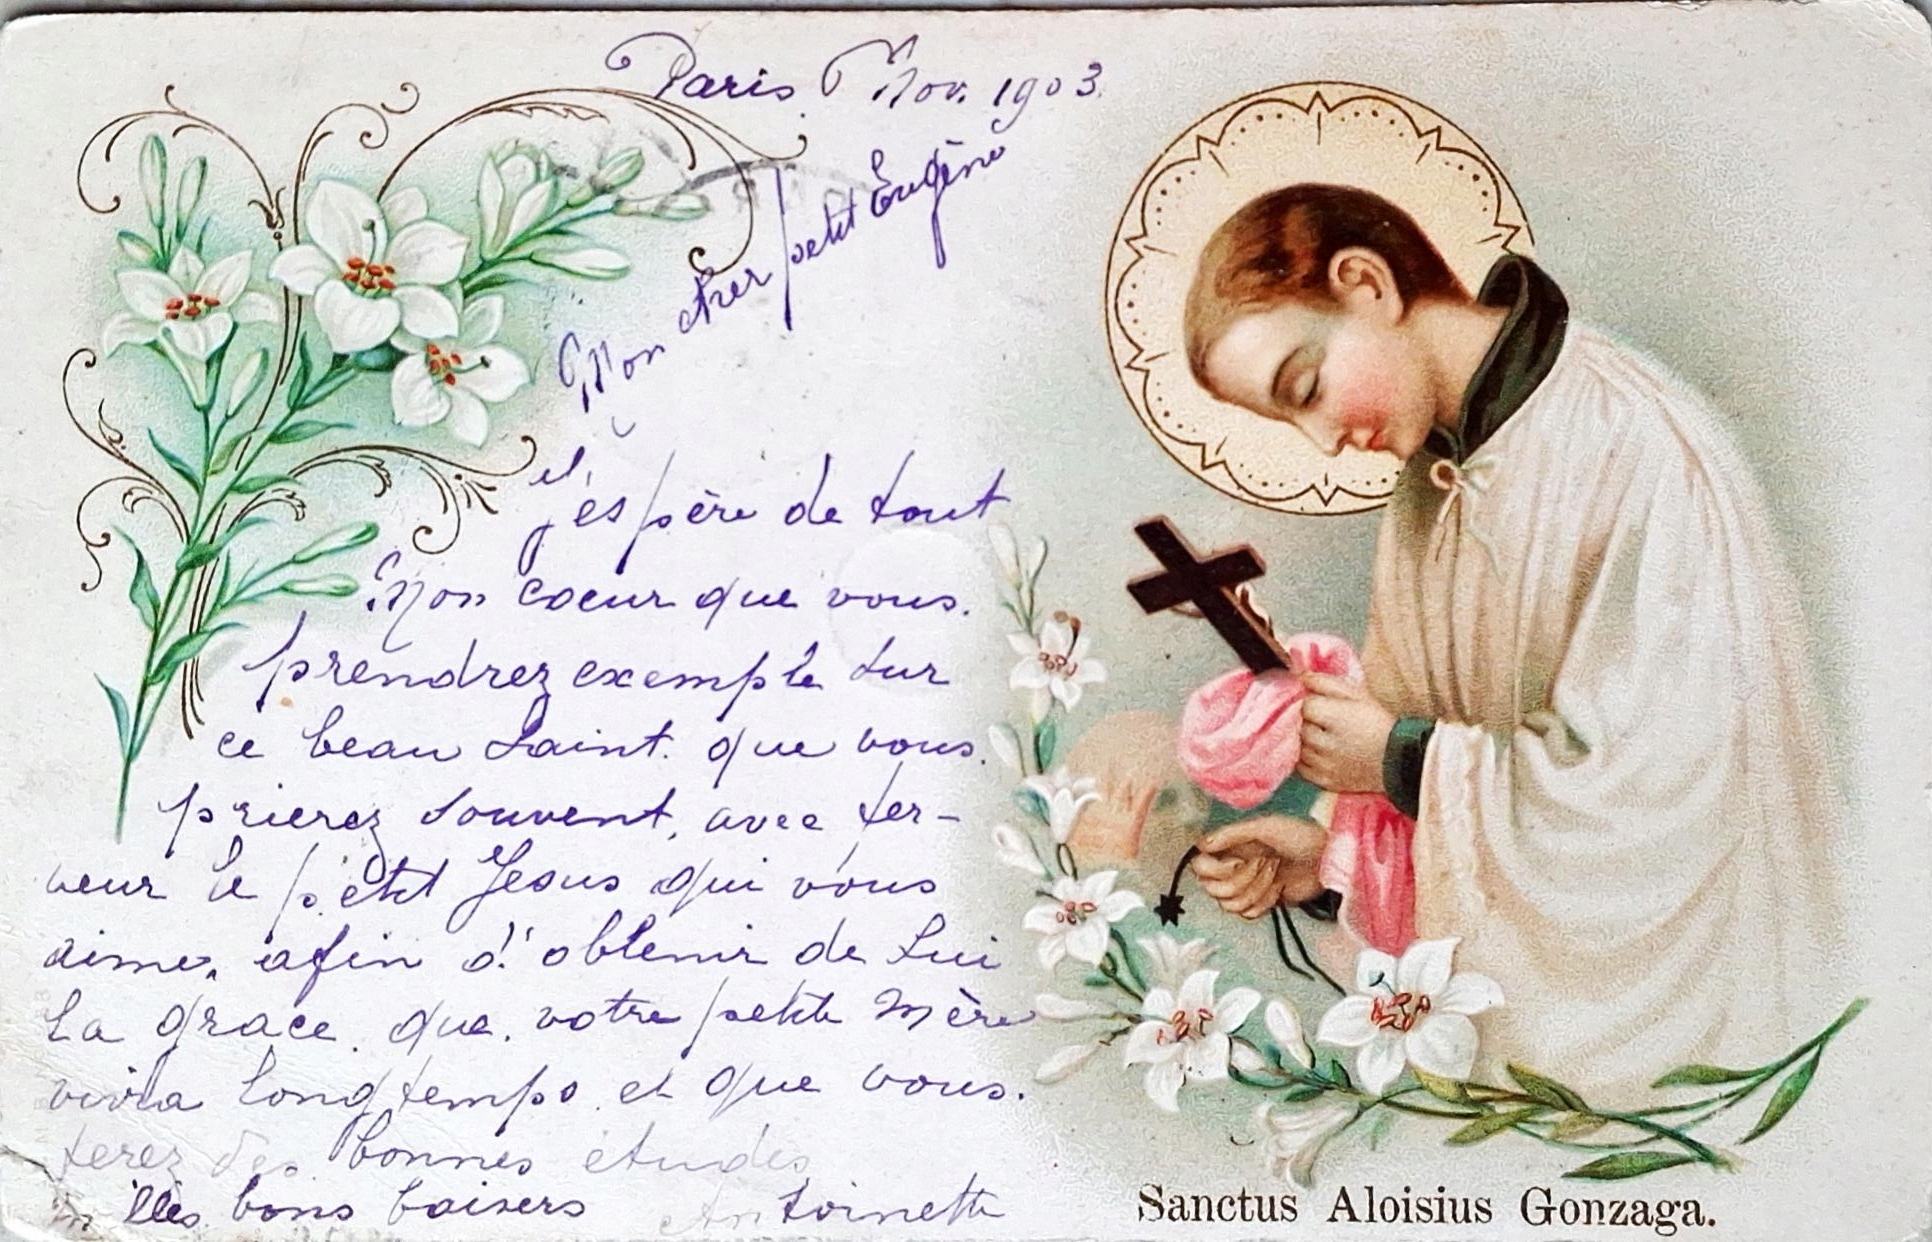 Paris 6 Nov. 1903.
Mon cher petit Eugène
et,
j'espère de tout
Mon coeur que vous.
prendrez exemple sur
ce beau Saint. que vous.
prierez souvent, avec fer-
veur le petit Jesus qui vous
aime, afin d'obtenir de Lui
la grace. que. votre petite Mère
vivra longtemps. et que vous.
ferez des bonnes études
Milles bons baisers Antoinette
Sanctus Aloisius Gonzaga.